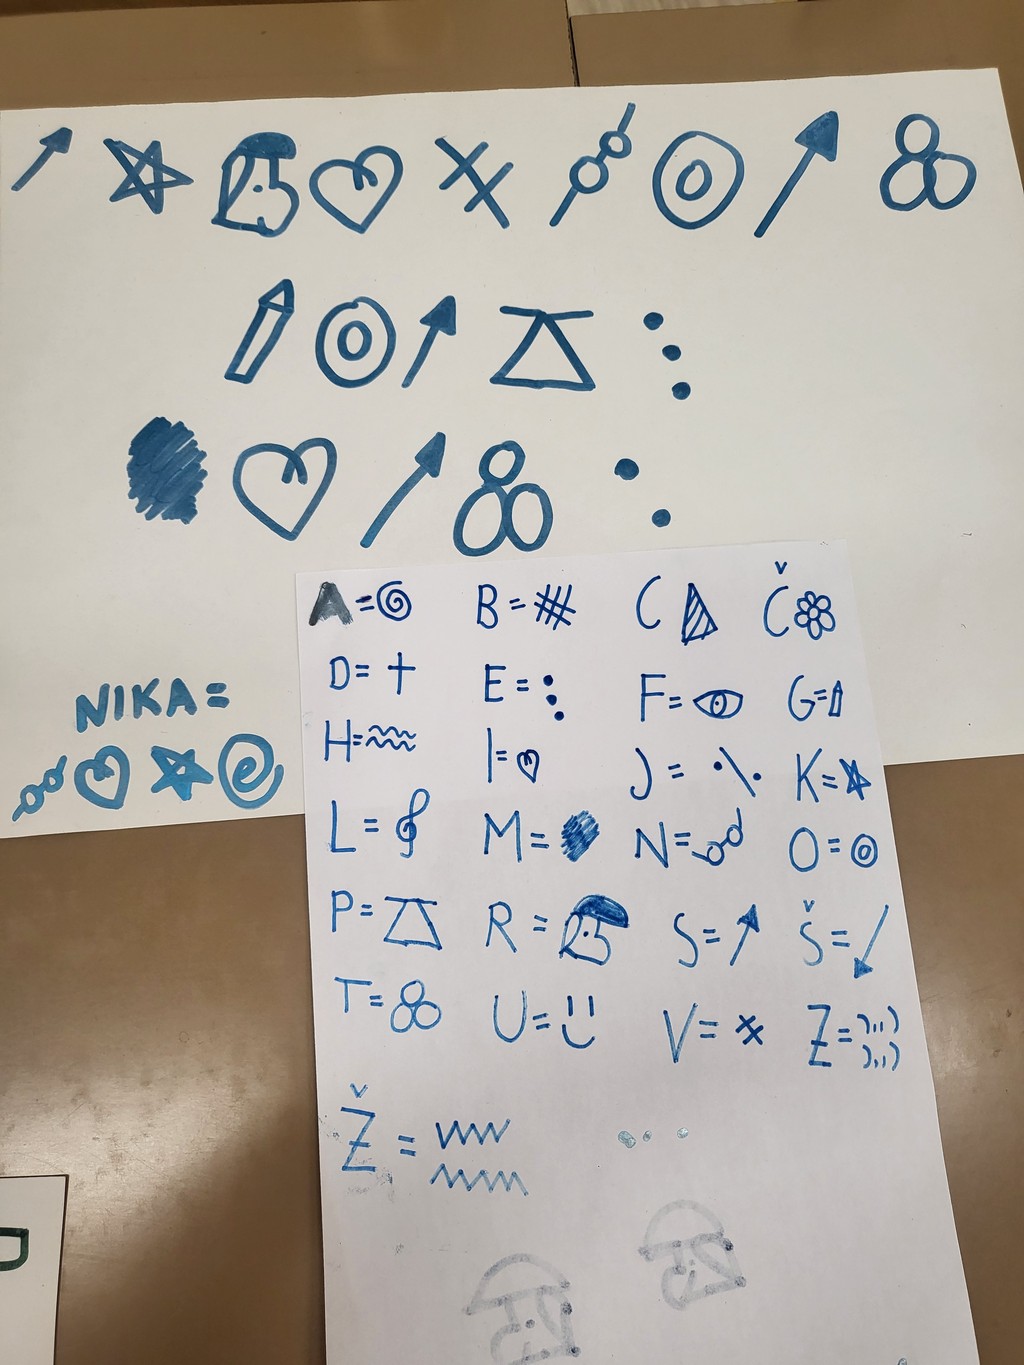 NIKA=
A= B= C Č
D= E= F= G=
H= I= J= K=
L= M= N= O=
P= R= S= Š=
T= U= V= Z=
Ž=